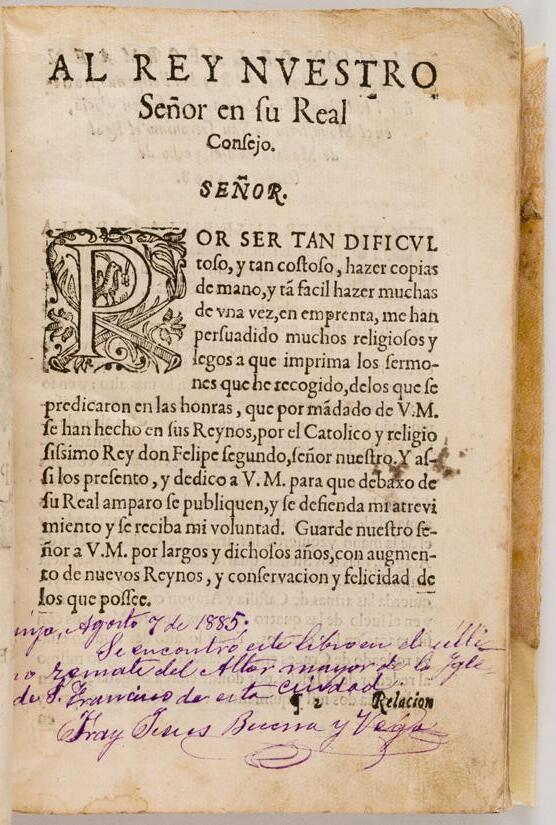 AL REY NVESTRO
Señor en ſu Real
Conſejo.
SEÑOR.
POR SER TAN DIFICVL
toſo, y tan coſtoſo, hazer copias
de mano, y tã facil hazer muchas
de vna vez, en emprenta, me han
perſuadido muchos religioſos y
legos a que imprima los ſermo-
nes que he recogido, delos que ſe
predicaron en las honras, que por mãdado de V.M.
ſe han hecho en ſus Reynos, por el Catolico y religio
ſiſsimo Rey don Felipe ſegundo, ſeñor nueſtro. Y aſ-
ſi los preſento, y dedico a V.M. para que debaxo de
ſu Real amparo ſe publiquen, y ſe defienda mi atrevi
miento y ſe reciba mi voluntad. Guarde nueſtro ſe-
ñor a V.M. por largos y dichoſos años, con augmen-
to de nuevos Reynos, y conſervacion y felicidad de
los que poſſee.
Agosto 7 de 1885.
Se encontró este libro en el ulti
mo remate del Altar mayor de la Igle
de S. Francisco de esta ciudad.
¶ 2 Relacion
Fray Jesus Buena y Vega